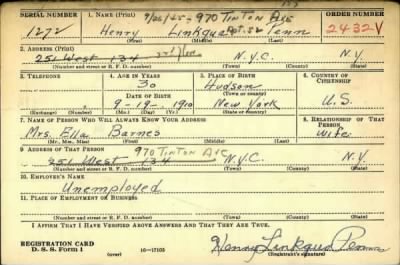 127
SERIAL NUMBER 1. NAME (Print) 9/26/45 - 970 TINTON AVE ORDER NUMBER
1272 Henry Linkque Apt. 52 Penn 2432V
(First) (Middle) (Last)
2. ADDRESS (Print)
251 West 134 3rd floor N.Y.C. N.Y.
(Number and street or R. F. D. number) (Town) (County) (State)
3. TELEPHONE 4. AGE IN YEARS 5. PLACE OF BIRTH 6. COUNTRY OF CITIZENSHIP
30 Hudson
DATE OF BIRTH (Town or county)
9-19-1910 New York U.S.
(Exchange) (Number) (Mo.) (Day) (Yr.) (State or country)
7. NAME OF PERSON WHO WILL ALWAYS KNOW YOUR ADDRESS 8. RELATIONSHIP OF THAT PERSON
Mrs. Ella Barnes Wife
(Mr., Mrs., Miss) (First) (Middle) (Last)
9. ADDRESS OF THAT PERSON 970 TINTON AVE
251 West 134 N.Y.C. N.Y.
(Number and street or R. F. D. number) (Town) (County) (State)
10. EMPLOYER'S NAME
Unemployed
11. PLACE OF EMPLOYMENT OR BUSINESS
(Number and street or R. F. D. number) (Town) (County) (State)
I AFFIRM THAT I HAVE VERIFIED ABOVE ANSWERS AND THAT THEY ARE TRUE.
REGISTRATION CARD
D. S. S. Form 1 (over) 16-17105 Henry Linkque Penn
(Registrant's signature)